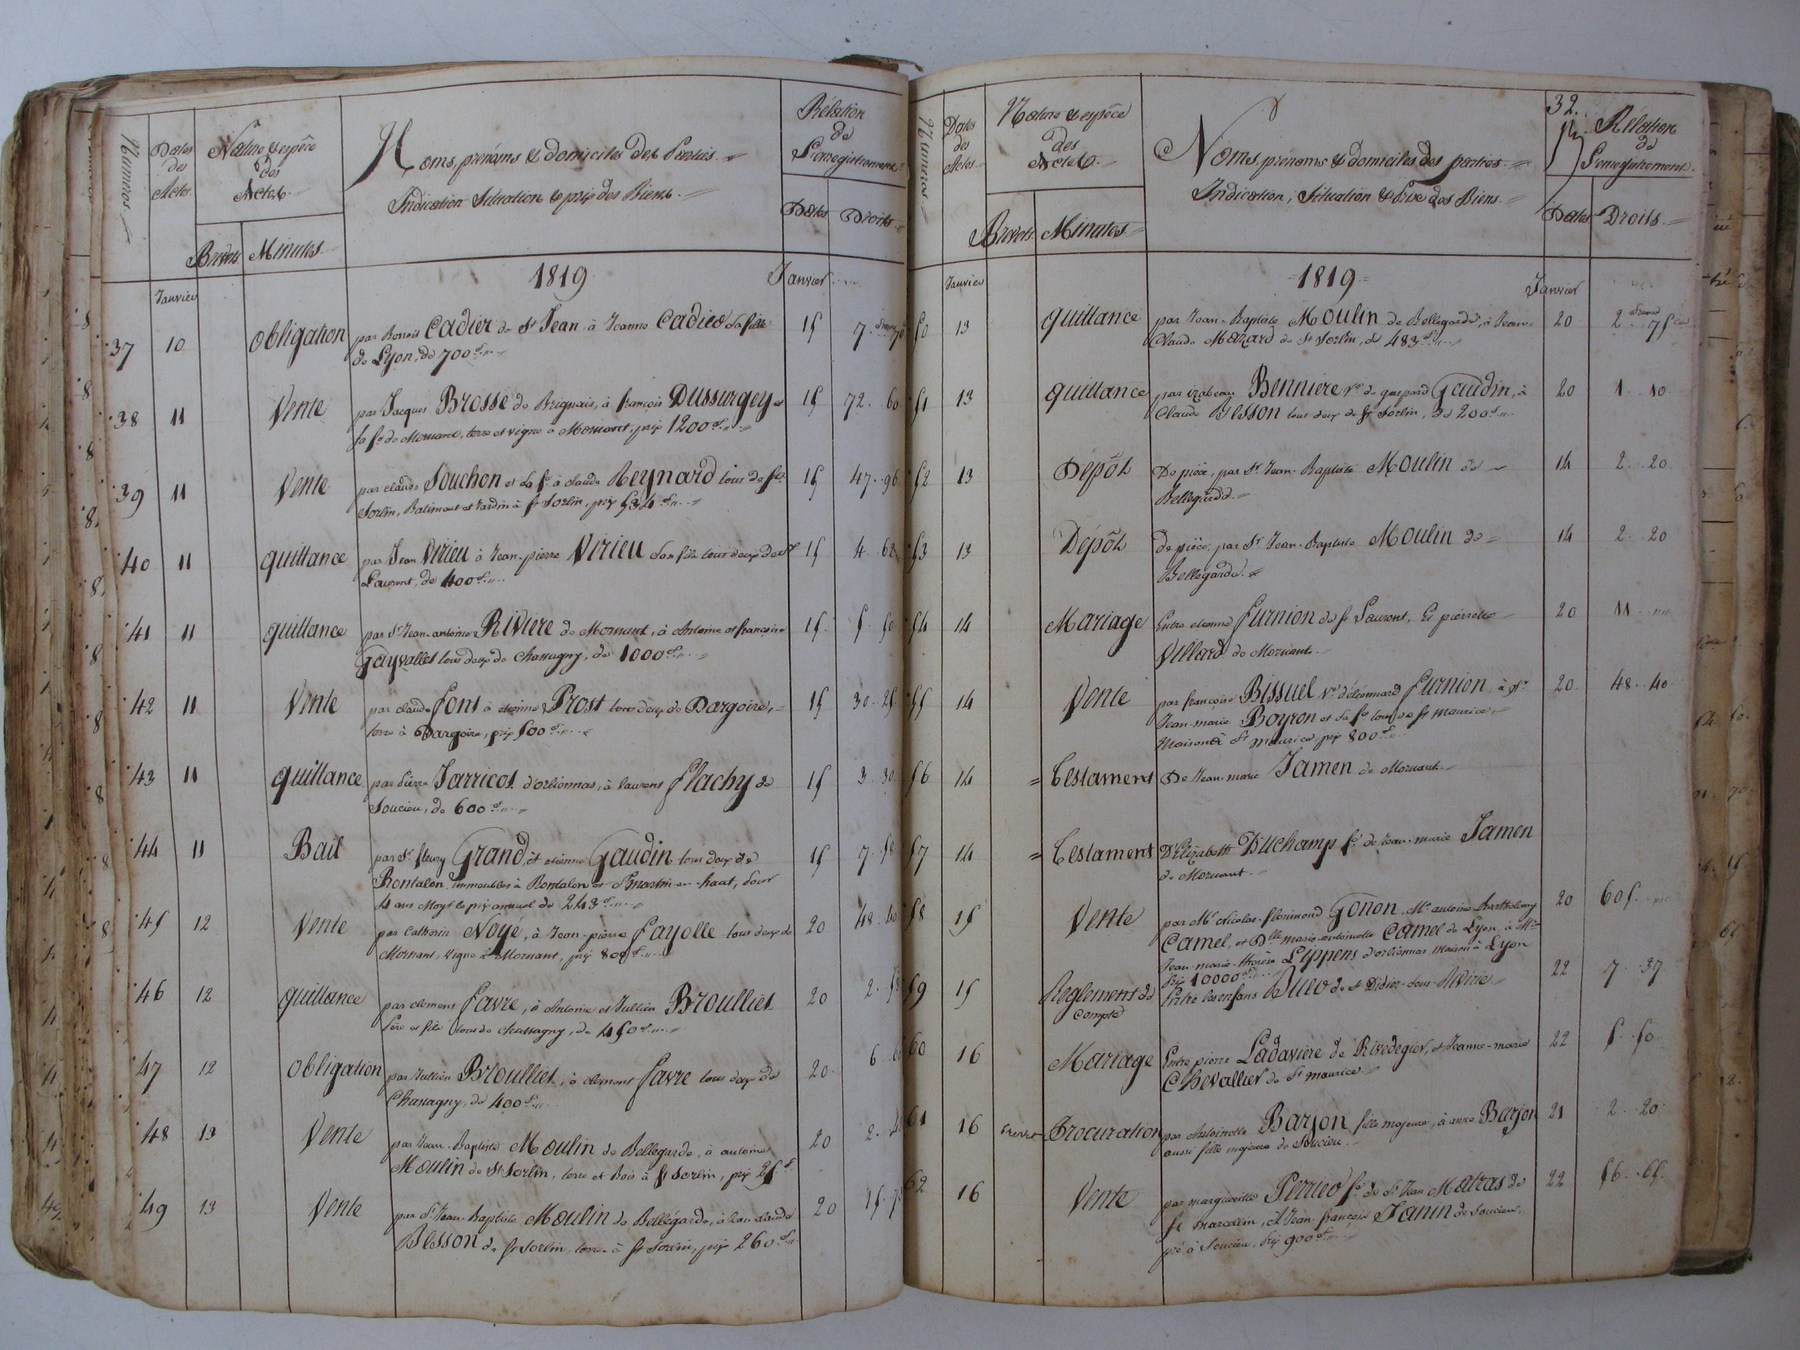 Numéros
Dates des Actes
Nature & espèce des Actes
Brévets Minutes
Noms, prénoms & domiciles des Parties
Indication Situation & prix des Biens
Rélation de l'enregistrement
Dates Droits
1819 Janvier
Janvier
37 10 Obligation par Benoit Cadier de St Jean à Jeanne Cadier sa fille 15 7
de Lyon, de 700f
38 11 Vente par Jacques Brosse de Brignais, à françois Dussurgey et 15 72 60
sa fe de Mornant, terre et vigne à Mornant, prix 1200f
39 11 Vente par claude Souchon et sa fe à claude Reynard tous de St 15 47 96
Sorlin, Batiment et Jardin à St Sorlin, prix 534f
40 11 quittance par Jean Virieu à Jean-pierre Virieu son fils tous deux de St 15 4 68
Laurent, de 400f
41 11 quittance par Sr Jean-antoine Rivière de Mornant, à Antoine et françoise 15 5 50
Gayvallet tous deux de Chassagny, de 1000f
42 11 Vente par claude Font à etienne Prost tous deux de Dargoire, 15 30 25
terre à Dargoire, prix 500f
43 11 quittance par Pierre Jarricot d'orliennas, à laurent Flachy de 15 3 30
Soucieu, de 600f
44 11 Bail par Sr fleury Grand, et etienne Gaudin tous deux de 15 7
Rontalon, immeubles à Rontalon et St martin en-haut, pour
4 ans Moyt le prix annuel de 243f
45 12 Vente par Catherin Noyé, à Jean-pierre Fayolle tous deux de 20 48 40
Mornant, vigne à Mornant, prix 800f
46 12 quittance par clément Favre, à Antoine et Jullien Broulliet 20 2
père et fils tous de chassagny, de 450f
47 12 Obligation par Jullien Broulliet, à clément Favre tous deux de 20 6
Chassagny, de 400f
48 13 Vente par Jean-Baptiste Moulin de Bellegarde, à antoine 20 2
Moulin de St Sorlin, terre et Bois à St Sorlin, prix 25f
49 13 Vente par Sr Jean-Baptiste Moulin de Bellegarde, à Jean claude 20 15
Besson de St Sorlin, terre à St Sorlin, prix 260f
32.
Numéros
Dates des Actes
Nature & espèce des Actes
Brévets Minutes
Noms, prénoms & domiciles des parties
Indication, Situation & Prix des Biens
Rélation de l'enregistrement
Dates Droits
Janvier 1819 Janvier
50 13 quittance par Jean-Baptiste Moulin de Bellegarde, à Jean- 20 2 75
Claude de St Sorlin, de 483f
51 13 quittance par izabeau Bennière ve de gaspard Gaudin, à 20 1 10
Claude Besson tous deux de St Sorlin, de 200f
52 13 Dépôt De pièce, par Sr Jean-Baptiste Moulin de 14 2 20
Bellegarde
53 13 Dépôt de pièce, par Sr Jean-Baptiste Moulin de 14 2 20
Bellegarde
54 14 Mariage Entre etienne Furnion de St Laurent, Et pierrette 20 11
Villard de Mornant
55 14 Vente par françoise Bissuel ve d'éléonnard Furnion, à Sr 20 48 40
Jean-marie Boyron et sa fe tous de St maurice,
Maison à St maurice, prix 800f
56 14 Testament De Jean-marie Jamen de Mornant
57 14 Testament D'Elizabeth Duchamp fe de Jean-marie Jamen
de Mornant
58 15 Vente par Mr Nicolas-florimond Gonon, Mr antoine Barthelemy 20 605
Camel, et Dlle marie-antoinette Camel de Lyon, à Mr
Jean-marie-therèse Lippens d'orliennas, maison à Lyon
prix 10000f
59 15 Réglement de Compte Entre les enfans de St Didier-sous-Rivirie 22 7 37
60 16 Mariage Entre pierre Ladavière de Rivedegier, et Jeanne-marie 22 5 50
Chevallier de St maurice
61 16 Brevet Procuration par Antoinette Barjon fille majeure, à anne Barjon 21 2 20
aussi fille majeure de Soucieu
62 16 Vente par marguerite Perrier fe de Sr Jean Matras de 22 56 65
St marcellin, à Jean-françois Janin de Soucieu,
pré à Soucieu, prix 900f